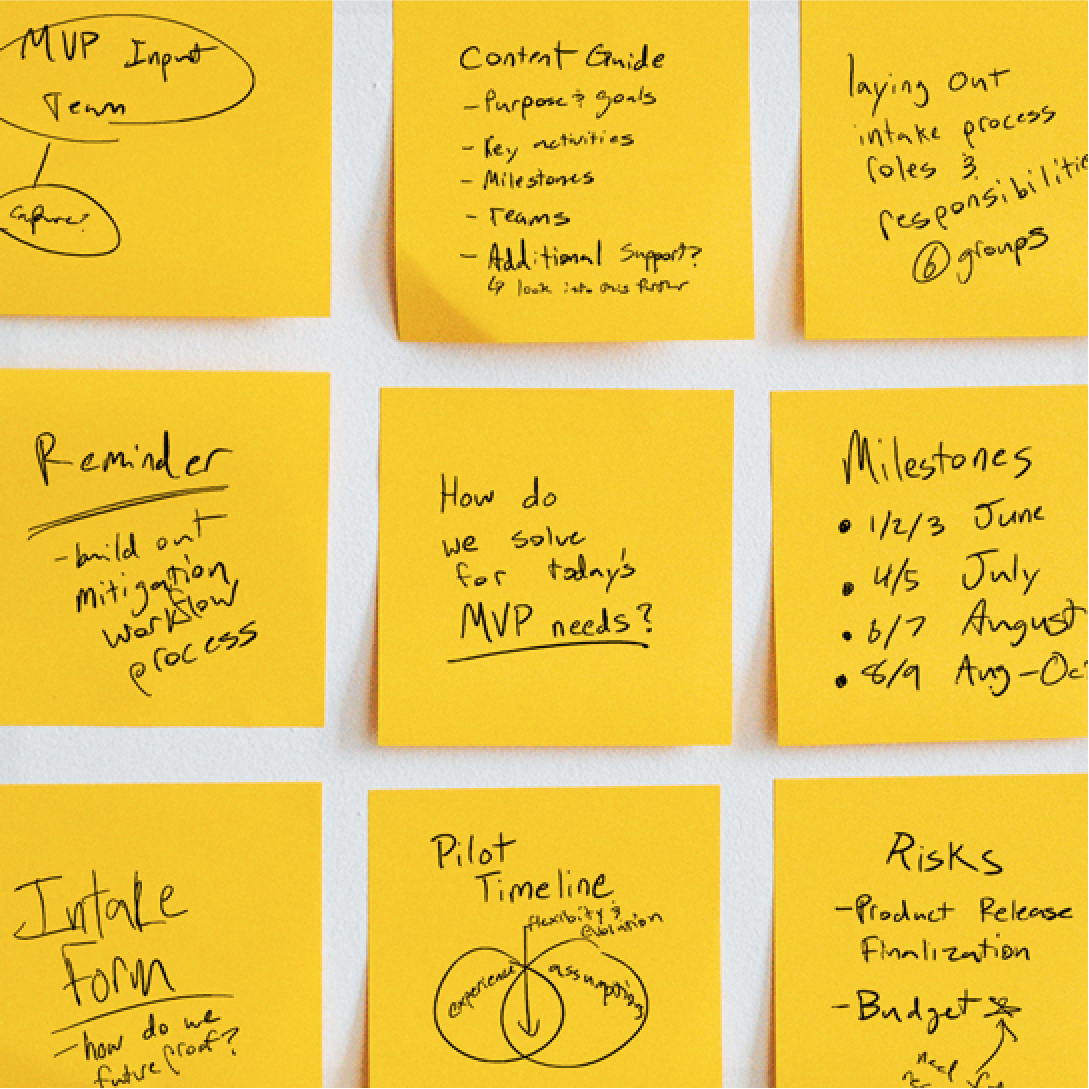 MVP Input
Team
Capture?
Content Guide
- Purpose & goals
- Key activities
- Milestones
- Teams
- Additional Support?
↳ look into this further
laying out
intake process
roles &
responsibilitie
6 groups
Reminder
- build out
mitigation
workflow
process
How do
we solve
for today's
MVP needs?
Milestones
• 1/2/3 June
• 4/5 July
• 6/7 August
• 8/9 Aug-Oct
Intake
Form
- how do we
future proof?
Pilot
Timeline
flexibity &
evolution
experience
assumptions
Risks
- Product Release
Finalization
- Budget
need